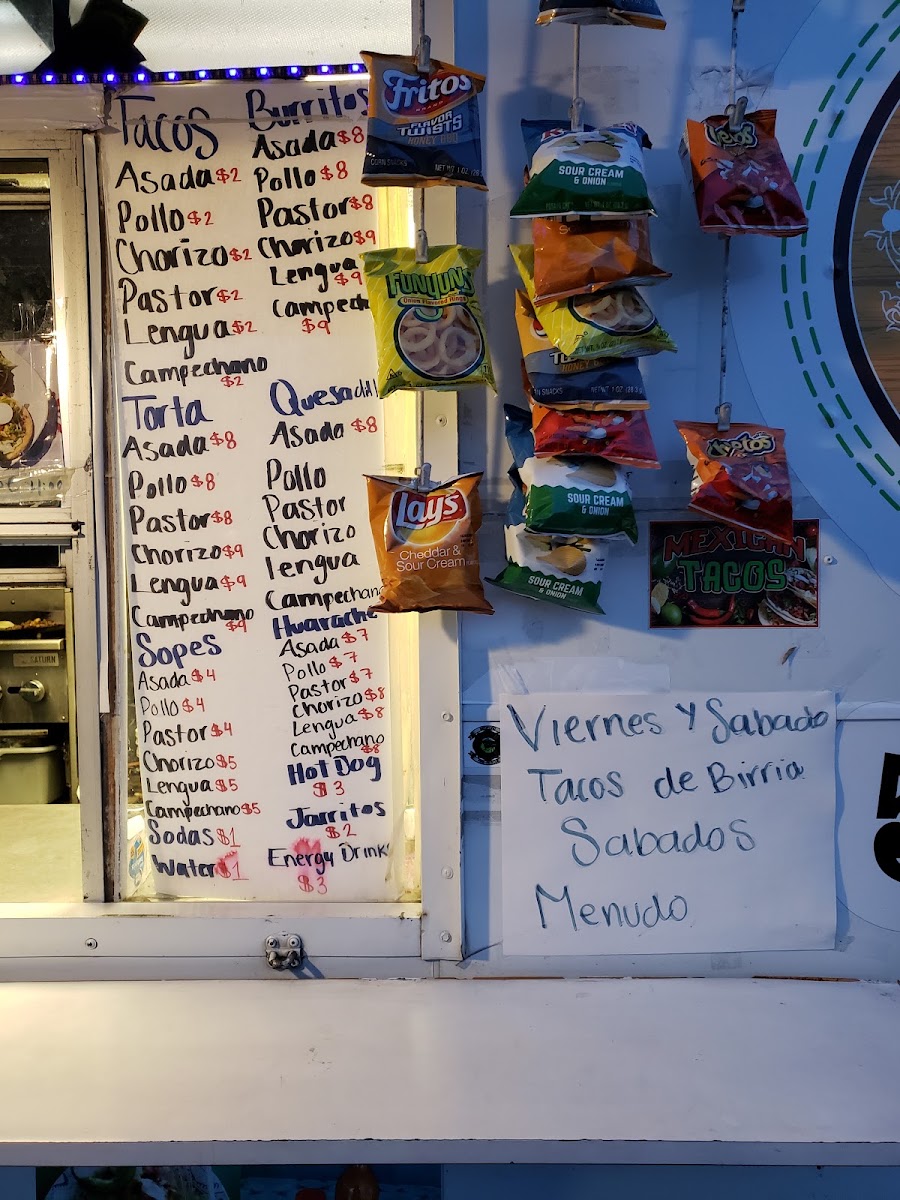 Tacos
Asada $2
Pollo $2
Chorizo $2
Pastor $2
Lengua $2
Campechano
$2
Burritos
Asada $8
Pollo $8
Pastor $8
Chorizo $9
Lengua
$9
Campech
$9
Torta
Asada $8
Pollo $8
Pastor $8
Chorizo $9
Lengua $9
Campechano
$9
Quesadil
Asada $8
Pollo
Pastor
Chorizo
lengua
Campechano
Sopes
Asada $4
Pollo $4
Pastor $4
Chorizo $5
Lengua $5
Campechano $5
Sodas $1
Water $1
Huarache
Asada $7
Pollo $7
Pastor $7
Chorizo $8
Lengua $8
Campechano
$8
Hot Dog
$3
Jarritos
$2
Energy Drink
$3
Fritos
BRAND
FLAVOR
TWISTS
HONEY BBQ
CORN SNACKS
NET WT. 1 OZ.
FUNYUNS
Onion Flavored Rings
Lay's
Cheddar &
Sour Cream
SOUR CREAM
& ONION
SOUR CREAM
& ONION
SOUR CREAM
& ONION
MEXICAN
TACOS
Viernes y Sabado
Tacos de Birria
Sabados
Menudo
SATURN